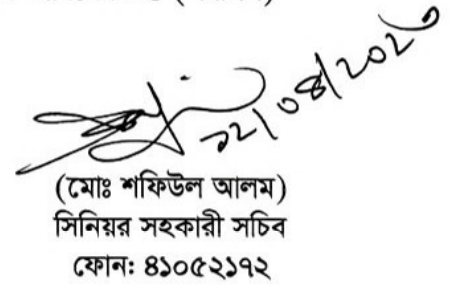 ১২/০৪/২০২৩
(মোঃ শফিউল আলম)
সিনিয়র সহকারী সচিব
ফোন: ৪১০৫২১৭২